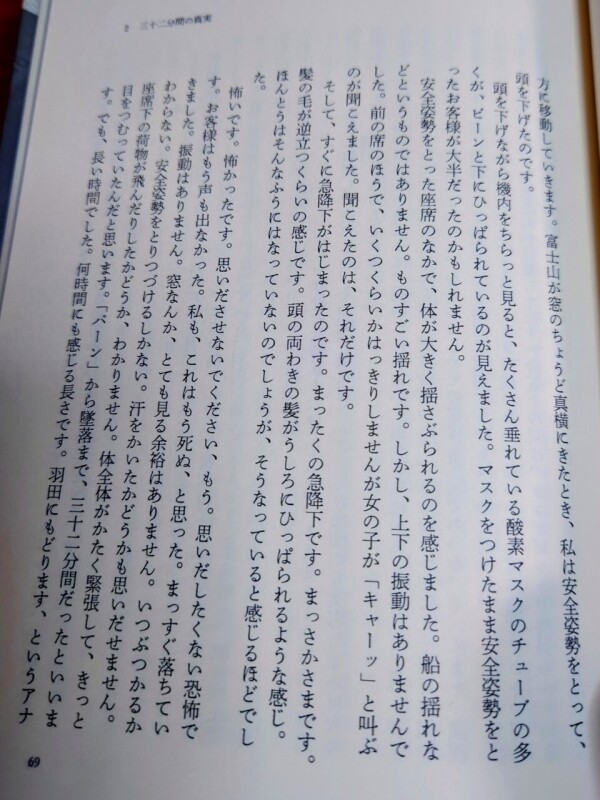 2 三十二分間の真実
方に移動していきます。富士山が窓のちょうど真横にきたとき、私は安全姿勢をとって、
頭を下げたのです。
頭を下げながら機内をちらっと見ると、たくさん垂れている酸素マスクのチューブの多
くが、ピーンと下にひっぱられているのが見えました。マスクをつけたまま安全姿勢をと
ったお客様が大半だったのかもしれません。
安全姿勢をとった座席のなかで、体が大きく揺さぶられるのを感じました。船の揺れな
どというものではありません。ものすごい揺れです。しかし、上下の振動はありませんで
した。前の席のほうで、いくつくらいかはっきりしませんが女の子が「キャーッ」と叫ぶ
のが聞こえました。聞こえたのは、それだけです。
そして、すぐに急降下がはじまったのです。まったくの急降下です。まっさかさまです。
髪の毛が逆立つくらいの感じです。頭の両わきの髪がうしろにひっぱられるような感じ。
ほんとうはそんなふうにはなっていないのでしょうが、そうなっていると感じるほどでし
た。
怖いです。怖かったです。思いださせないでください、もう。思いだしたくない恐怖で
す。お客様はもう声も出なかった。私も、これはもう死ぬ、と思った。まっすぐ落ちてい
きました。振動はありません。窓なんか、とても見る余裕はありません。いつぶつかるか
わからない。安全姿勢をとりつづけるしかない。汗をかいたかどうかも思いだせません。
座席下の荷物が飛んだりしたかどうか、わかりません。体全体がかたく緊張して、きっと
目をつむっていたんだと思います。「パーン」から墜落まで、三十二分間だったといいま
す。でも、長い時間でした。何時間にも感じる長さです。羽田にもどります、というアナ
69